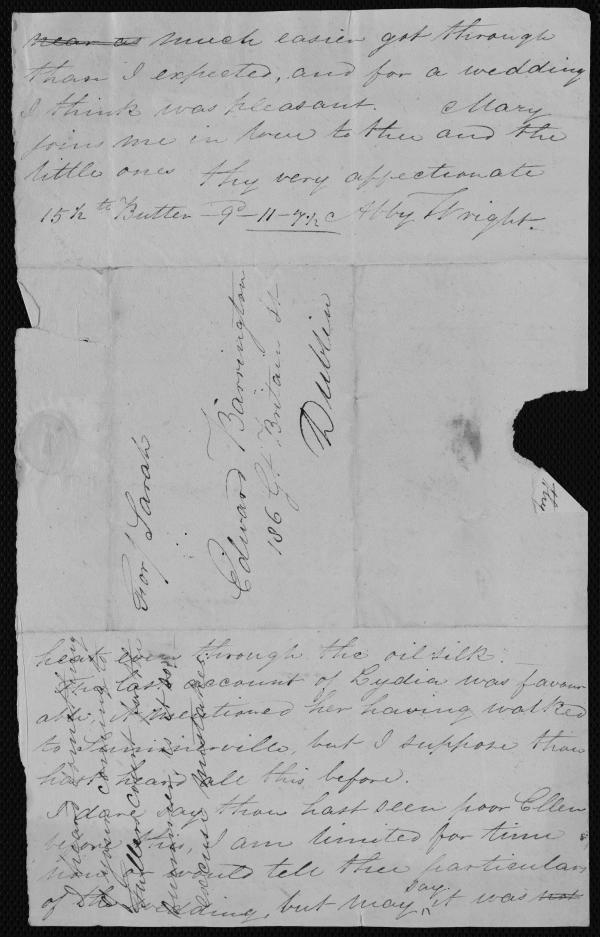 near as much easier got through
than I expected, and for a wedding
I think was pleasant. Mary
joins me in love to thee and the
little ones thy very affectionate
15½ th Butter - 9d - 11 - 7½ Abby Wright.
For Sarah
Edward Barrington
186 Gt Britain St
Dublin
heat even through the oil silk.
The last account of Lydia was favour
able, it mentioned her having walked
to Summerville, but I suppose thou
hast heard all this before.
I dare say thou hast seen poor Ellen
before this, I am limited for time
now or would tell thee particulars
of the wedding, but may say it was not
means coming
coming to
account
summer, is it so,
excuse mistakes